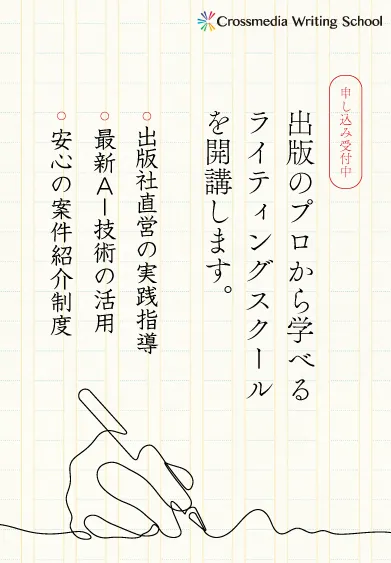 Crossmedia Writing School
申し込み受付中
出版のプロから学べる
ライティングスクール
を開講します。
出版社直営の実践指導
最新AI技術の活用
安心の案件紹介制度